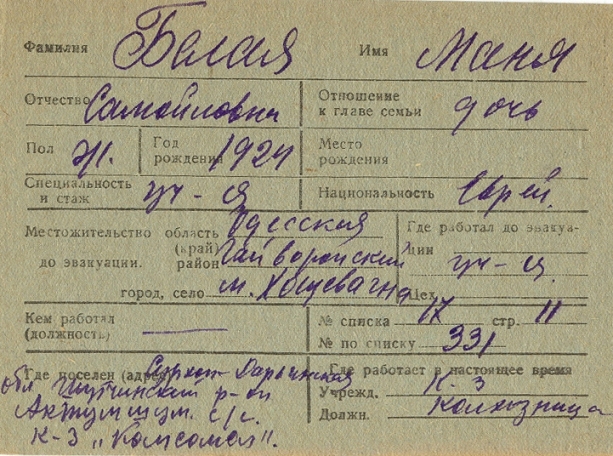 Фамилия Белая Имя Маня
Отчество Самойловна Отношение к главе семьи дочь
Пол Ж. Год рождения 1924 Место рождения
Специальность и стаж уч-ся Национальность Еврей.
Местожительство до эвакуации. область (край) Одесская
район Гайворонский
город, село м. Хощевагна
Где работал до эвакуации уч-ся.
Цех
Кем работал (должность) —
№ списка 17 стр. 11
№ по списку 331
Где поселен (адрес) Сурхан-Дарьинская
обл. р-он
с/с.
К-З „Комсомол".
Где работает в настоящее время
Учрежд. К-З
Должн. колхозница